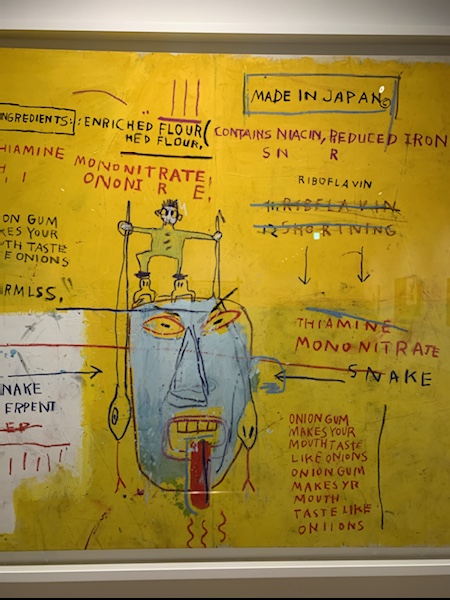 MADE IN JAPAN
INGREDIENTS: ENRICHED FLOUR (
HED FLOUR,
CONTAINS NIACIN, REDUCED IRON
SN R
THIAMINE MONONITRATE
H, I ONONI R E,
RIBOFLAVIN
11. RIBFLAVIN
12 SHORTNING
ON GUM
KES YOUR
UTH TASTE
E ONIONS
RMLSS.
THIAMINE
MONONITRATE
SNAKE
NAKE
ERPENT
ONION GUM
MAKES YOUR
MOUTH TASTE
LIKE ONIONS
ONION GUM
MAKES YR
MOUTH
TASTE LIKE
ONIIONS